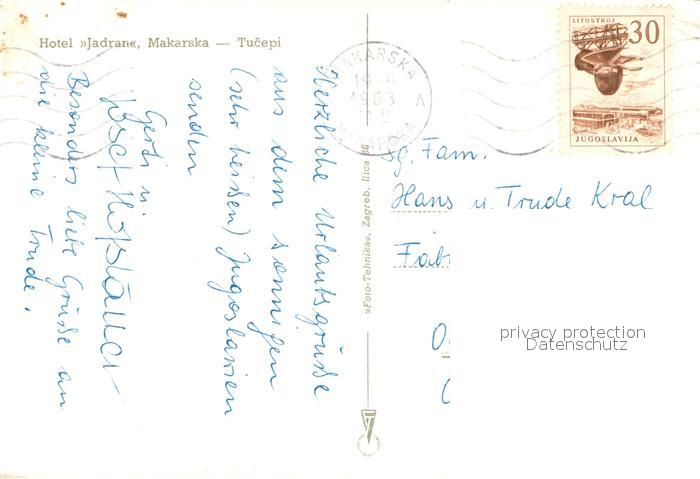 Hotel »Jadran«, Makarska — Tučepi
Herzliche Urlaubsgrüße
aus dem sonnigen
(sehr heißen) Jugoslawien
senden
Gerti u.
Josef
Besonders liebe Grüße an
die kleine Trude.
»Foto-Tehnika«, Zagreb, Ilica 86
MAKARSKA
1963
LITOSTROJ
30
JUGOSLAVIJA
Fam.
Hans u. Trude Kral
Fab
privacy protection
Datenschutz